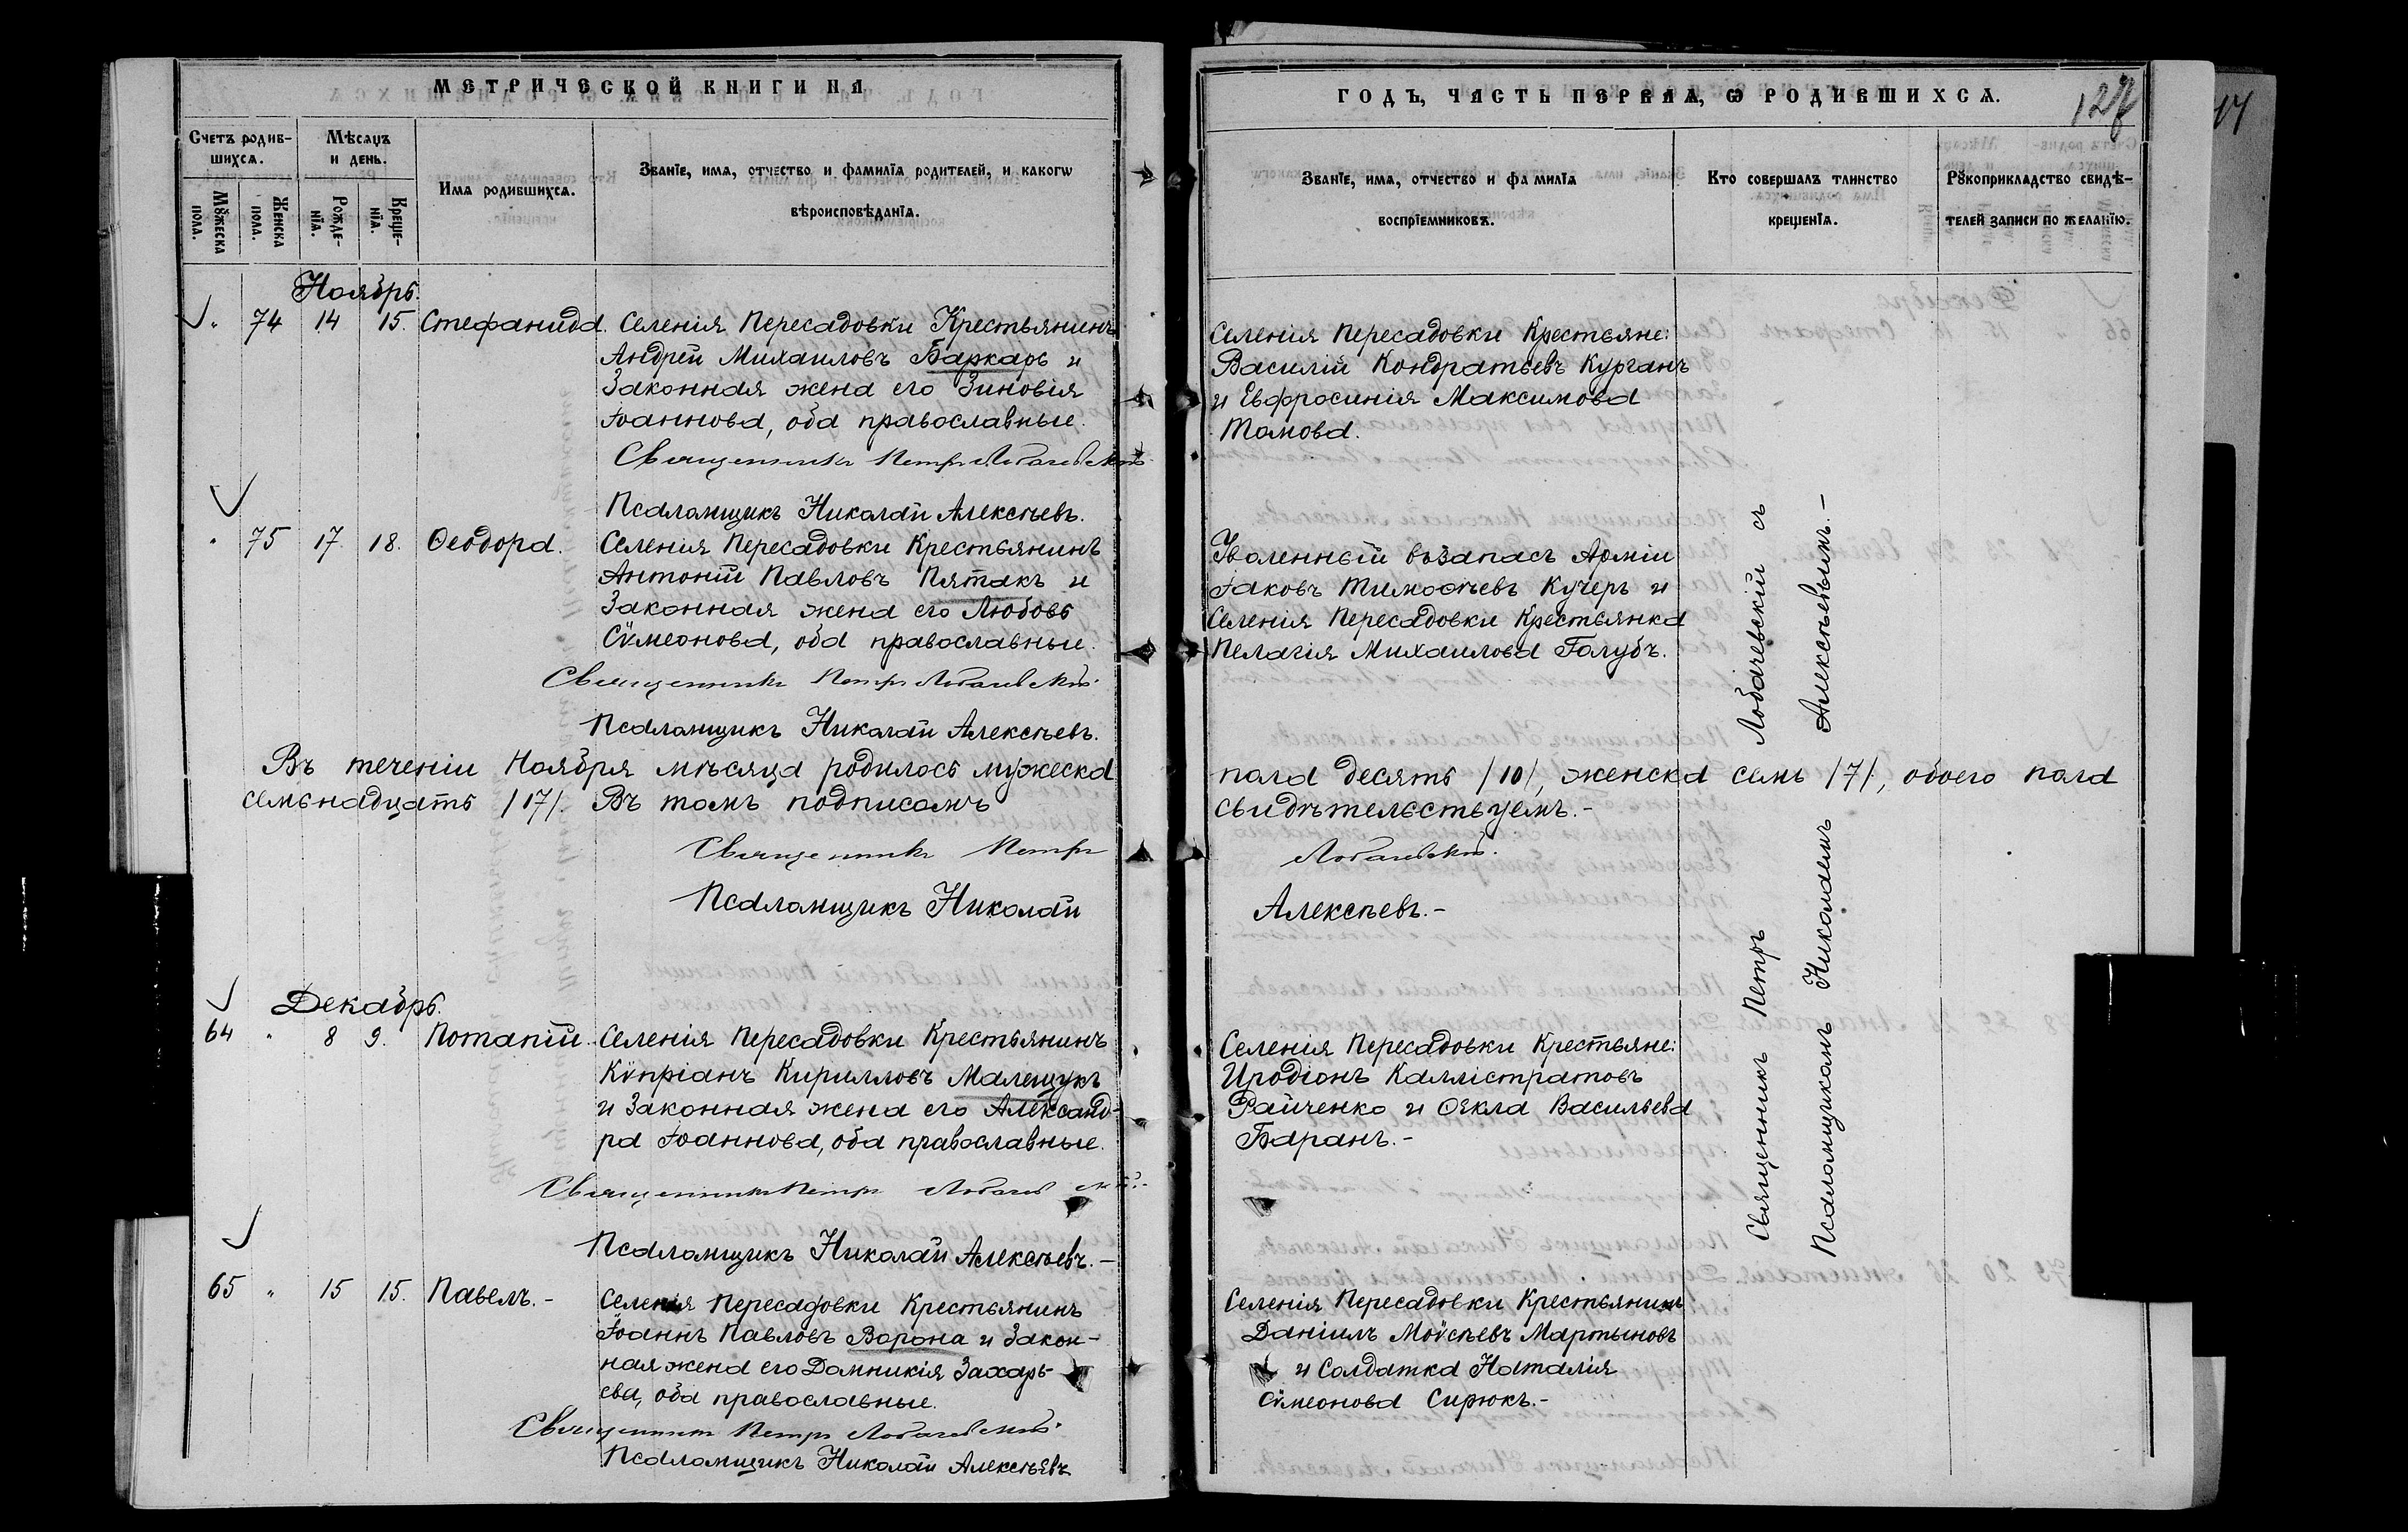 МЕТРИЧЕСКОЙ КНИГИ НА
Счетъ родив-
шихсѧ.
Мѣсѧцъ
и день.
Имѧ родившихсѧ.
Званїе, имѧ, отчество и фамилїѧ родителей, и какогѡ
вѣроисповѣданїѧ.
Мꙋжеска
пола.
Женска
пола.
Рожде-
нїѧ.
Креще-
нїѧ.
Ноябрь.
74 14 15. Стефанида. Селенія Пересадовки Крестьянинъ
Андрей Михаиловъ Баркарь и
Законная жена его Зиновія
Іоаннова, оба православные.
Священникъ Петръ Лобачевскій.
Псаломщикъ Николай Алексѣевъ.
75 17. 18. Ѳеодора. Селенія Пересадовки Крестьянинъ
Антоній Павловъ Пятакъ и
Законная жена его Любовь
Сѵмеонова, оба православные.
Священникъ Петръ Лобачевскій.
Псаломщикъ Николай Алексѣевъ.
Въ теченіи Ноября мѣсяца родилось мужеска
семьнадцать /17/. Въ томъ подписомъ
Священникъ Петръ
Псаломщикъ Николай
Декабрь.
64 " 8 9. Потапій. Селенія Пересадовки Крестьянинъ
Кѵпріанъ Кирилловъ Малещукъ
и Законная жена его Александ-
ра Іоаннова, оба православные.
Священникъ Петръ Лобачевскій.
Псаломщикъ Николай Алексѣевъ.-
65 " 15 15. Павелъ.- Селенія Пересадовки Крестьянинъ
Іоаннъ Павловъ Ворона и Закон-
ная жена его Домникія Захарь-
ева, оба православные.
Священникъ Петръ Лобачевскій.
Псаломщикъ Николай Алексѣевъ
ГОДЪ, ЧАСТЬ ПЕРВАЯ, Ѡ РОДИВШИХСѦ.
127
Званїе, имѧ, отчество и фамилїѧ
воспрїемниковъ.
Кто совершалъ таинство
крещенїѧ.
Рꙋкоприкладство свидѣ-
телей записи по желанїю.
Селенія Пересадовки Крестьяне:
Василій Кондратьевъ Курганъ
и Евфросинія Максимова
Томова.
Уволенный въ запасъ Арміи
Іаковъ Тимоѳѣевъ Кучеръ и
Селенія Пересадовки Крестьянка
Пелагія Михаилова Голубъ.
пола десять /10/, женска семь /7/, обоего пола
свидѣтельствуемъ.-
Лобачевскій.
Алексѣевъ.-
Селенія Пересадовки Крестьяне:
Иродіонъ Каллістратовъ
Райченко и Ѳекла Васильева
Баранъ.-
Селенія Пересадовки Крестьянинъ
Даніилъ Моѵсѣевъ Мартыновъ
и Солдатка Наталія
Сѵмеонова Сирюкъ.-
Священникъ Петръ Лобачевскій съ
Псаломщикомъ Николаемъ Алексѣевымъ.-